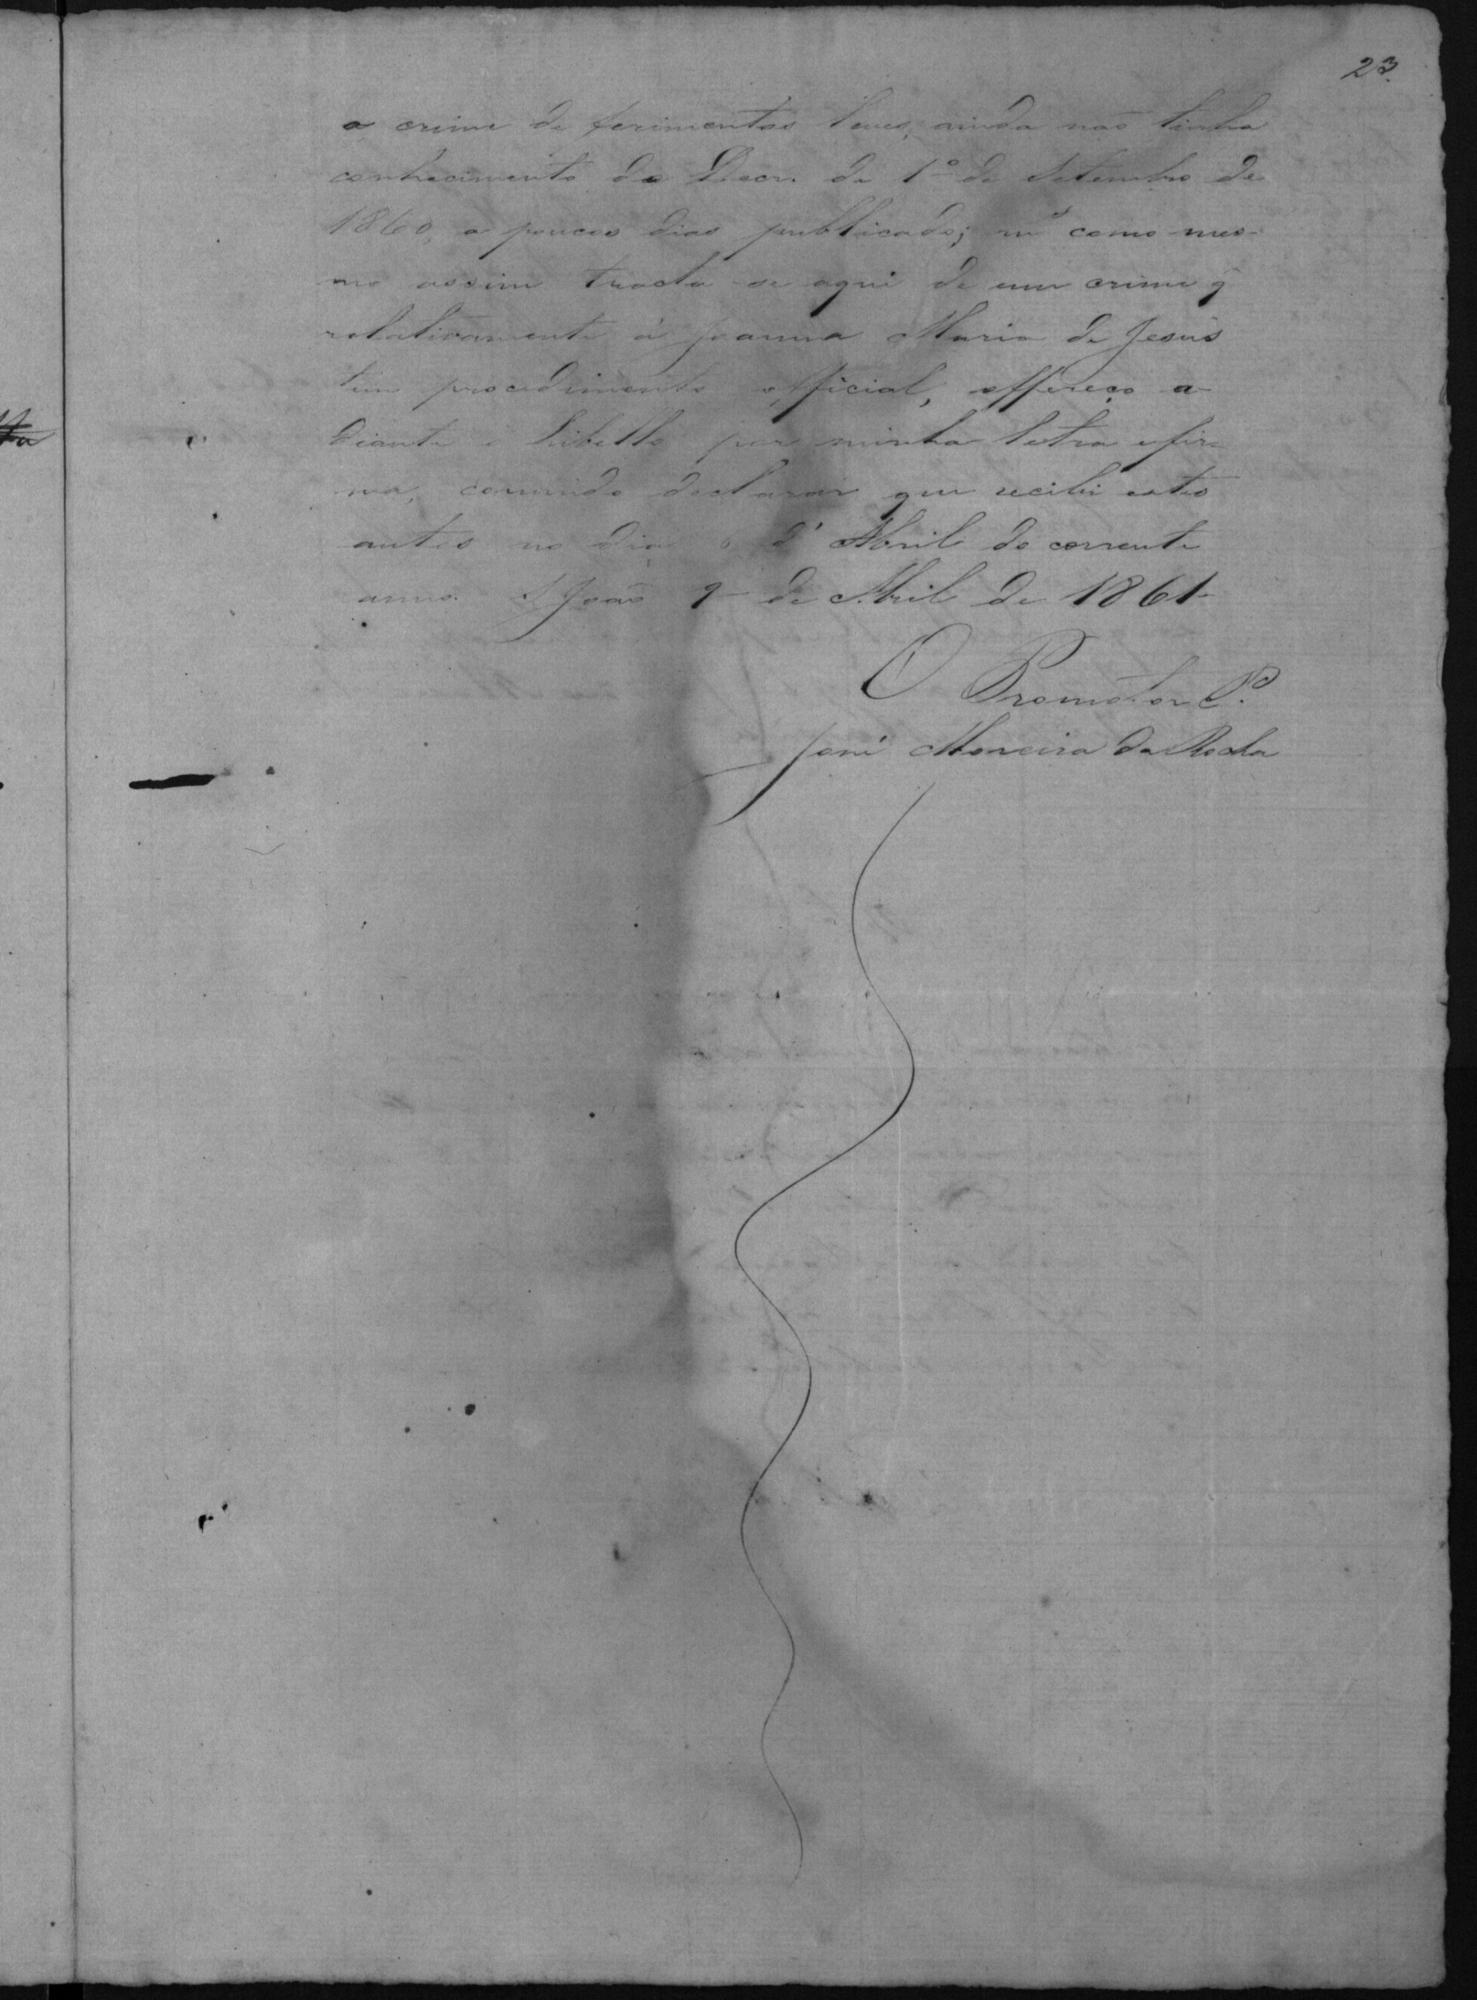 23.
o crime de ferimentos leves, ainda não tinha
conhecimento do Decr. de 1º de Setembro de
1860, a poucos dias publicado; como mes-
mo assim tracta-se aqui de um crime q̃
relativamente á Joanna Maria de Jesus
tem procedimento official, offereço a-
diante o libello por minha letra e fir-
ma, convindo declarar que recibi estes
autos no dia d'Abril do corrente
anno. S João 9 de Abril de 1861-
O Promotor P.º
José Moreira da Rocha